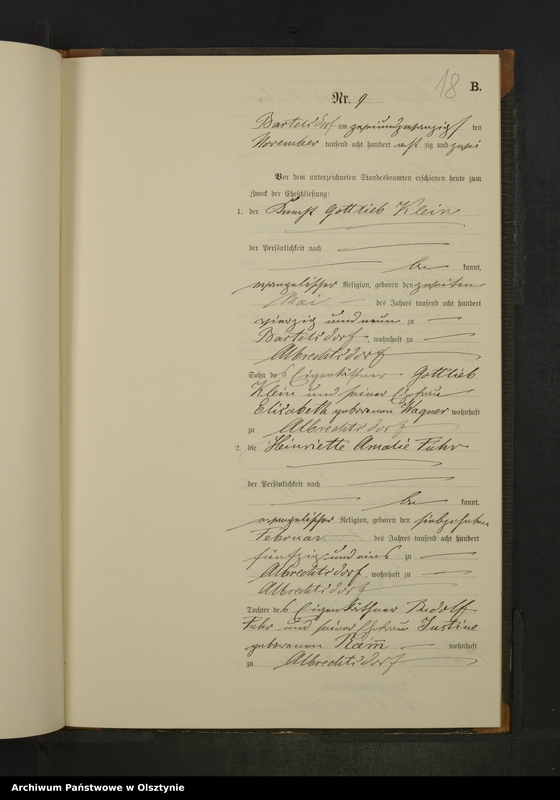 18 B.
Nr. 9
Bartelsdorf am zweiundzwanzigs ten
November tausend acht hundert acht zig und zwei
Vor dem unterzeichneten Standesbeamten erschienen heute zum
Zweck der Eheschließung:
1. der Knecht Gottlieb Klein
der Persönlichkeit nach
be kannt,
evangelischer Religion, geboren den zweiten
Mai des Jahres tausend acht hundert
vierzig und neun zu
Bartelsdorf, wohnhaft zu
Albrechtsdorf
Sohn des Eigenkäthner Gottlieb
Klein und seiner Ehefrau
Elisabeth geborenen Wagner wohnhaft
zu Albrechtsdorf
2. die Henriette Amalie Fuhr
der Persönlichkeit nach
be kannt,
evangelischer Religion, geboren den siebzehnten
Februar des Jahres tausend acht hundert
fünfzig und eins zu
Albrechtsdorf, wohnhaft zu
Albrechtsdorf
Tochter des Eigenkäthner Rudolf
Fuhr und seiner Ehefrau Justine
geborenen wohnhaft
zu Albrechtsdorf
Archiwum Państwowe w Olsztynie